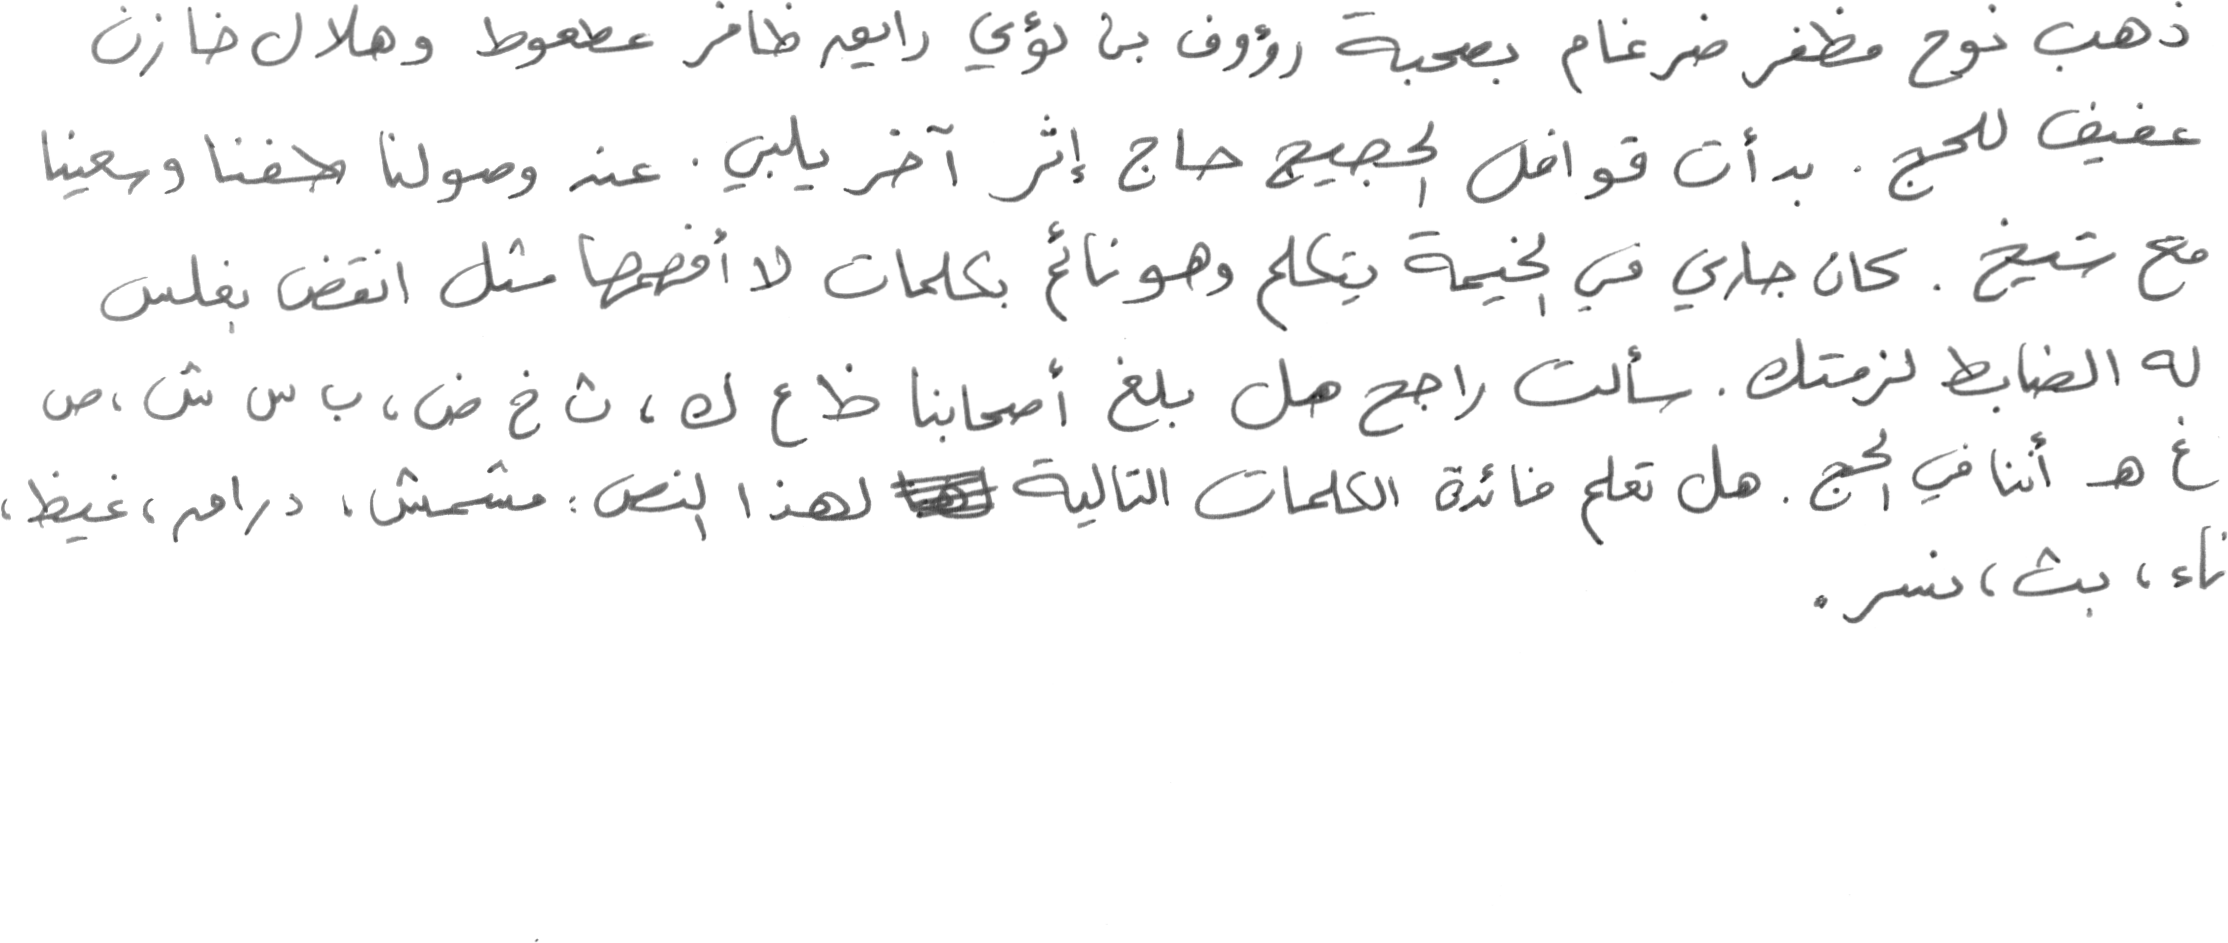 ذهب نوح مظفر ضرغام بصحبة رؤوف بن لؤي رايق ظافر عطعوط وهلال خازن
عفيف للحج . بدأت قوافل الحجيج حاج إثر آخر يلبي . عند وصولنا طفنا وسعينا
مع شيخ . كان جاري في الخيمة يتكلم وهو نائم بكلمات لا أفهمها مثل انقض بغلس
له الضابط لزمتك . سألت راجح هل بلغ أصحابنا ظ ع ك ، ث خ ض ، ب س ش ، ص
غ هـ أننا في الحج . هل تعلم فائدة الكلمات التالية لهذا النص : مشمش ، دراهم ، غيظ ،
ناء ، بث ، نسر .